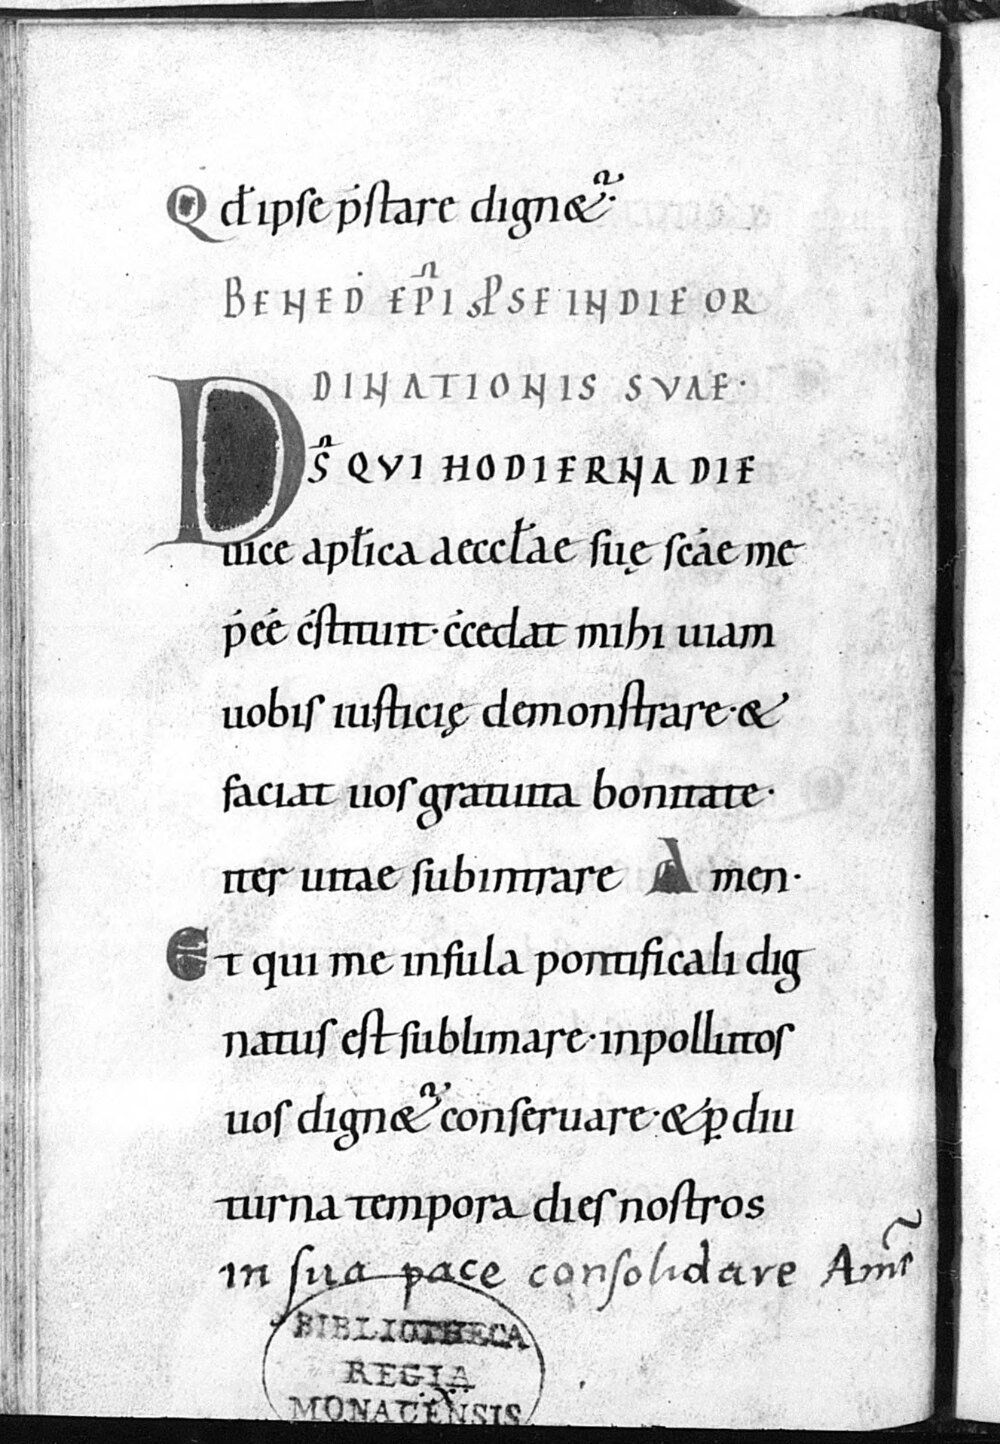 Qd̄ ipse p̄stare dign&ur·
BENED EP̄I SUP SE IN DIE OR
DINATIONIS SVAE·
DS̄ QVI HODIERNA DIE
uice apl̄ica aeccl̄ae suę sc̄ae me
p̄eē c̄stituit· c̄cedat mihi uiam
uobis iusticię demonstrare· &
faciat uos gratuita bonitate·
iter uitae subintrare Amen·
Et qui me insula pontificali dig
natus est sublimare· inpollutos
uos dign&ur conseruare· & p̱ diu
turna tempora dies nostros
in sua pace consolidare Am̄
BIBLIOTHECA
REGIA
MONACENSIS